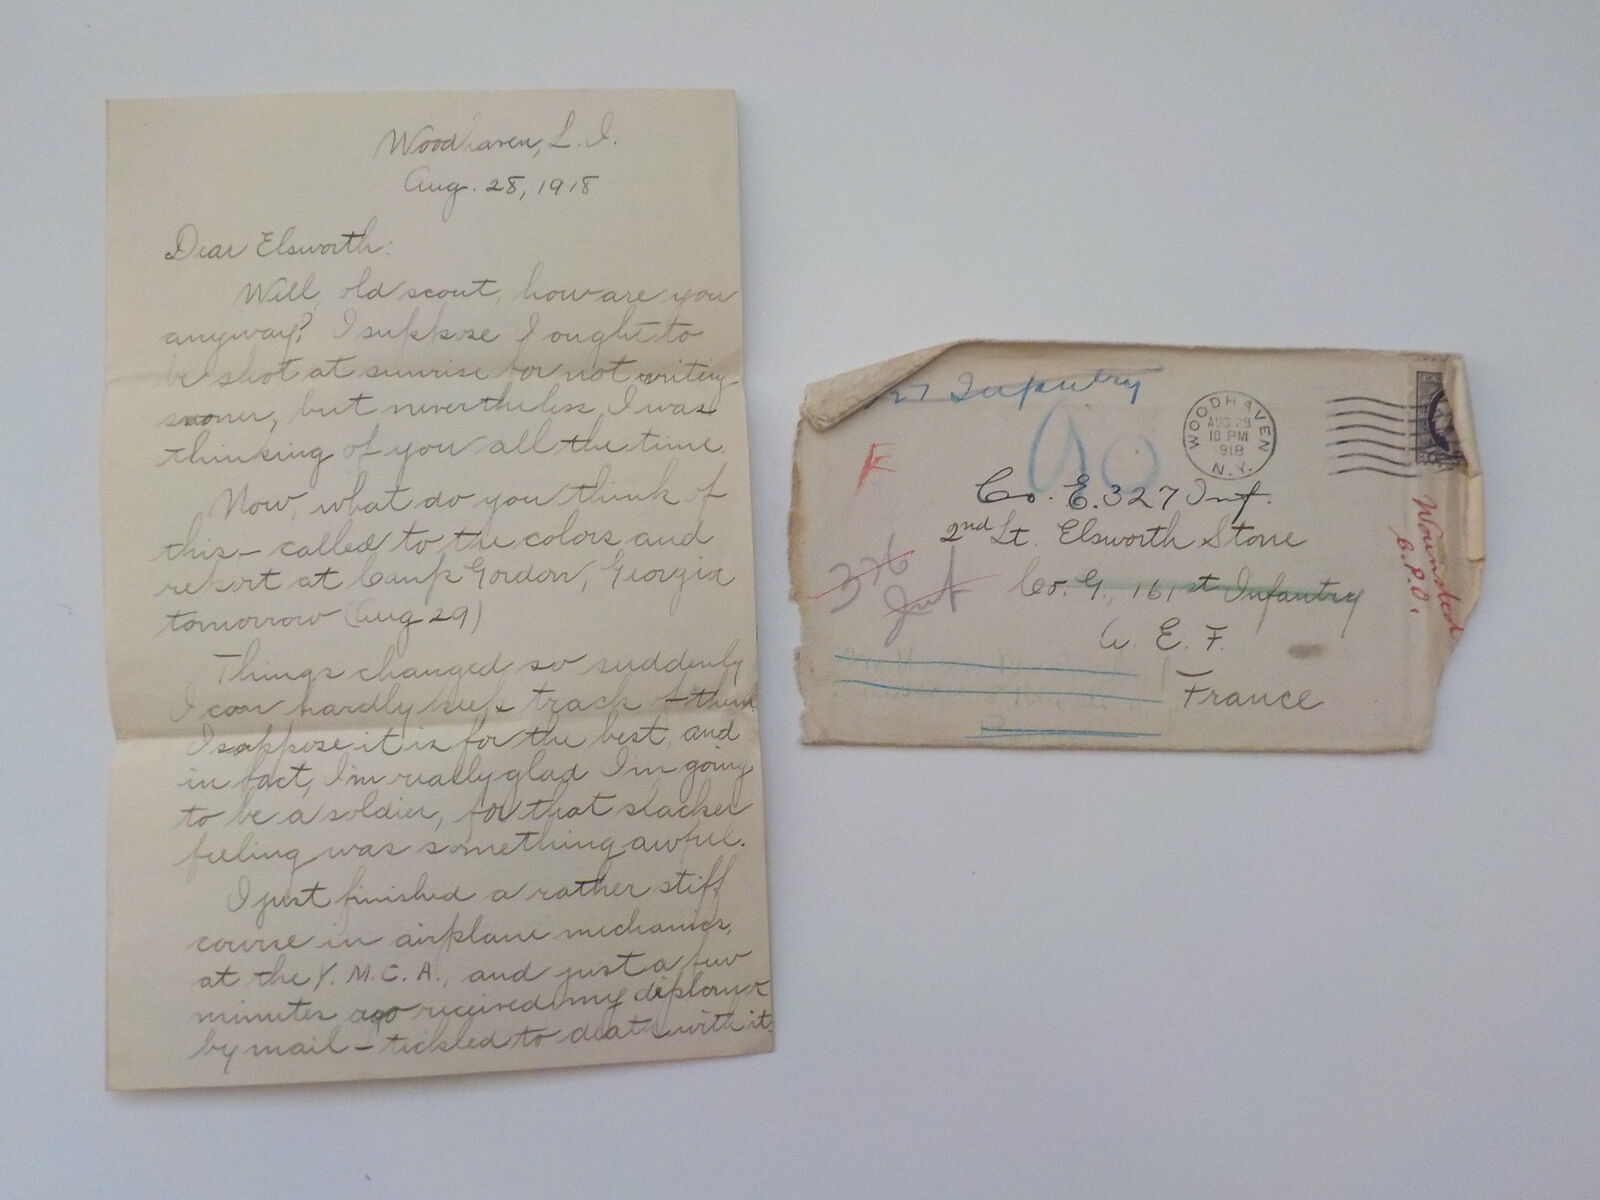 Woodhaven, L. I.
Aug. 28, 1918
Dear Elsworth:
Well, old scout, how are you
anyway? I suppose I ought to
be shot at sunrise for not writing
sooner, but nevertheless I was
thinking of you all the time.
Now, what do you think of
this - called to the colors and
report at Camp Gordon, Georgia
tomorrow (Aug 29)
Things changed so suddenly
I can hardly keep track of them.
I suppose it is for the best, and
in fact, I'm really glad I'm going
to be a soldier, for that slacker
feeling was something awful.
I just finished a rather stiff
course in airplane mechanics,
at the Y. M. C. A., and just a few
minutes ago received my diploma
by mail - tickled to death with it.
27 Infantry
WOODHAVEN
AUG 28
10 PM
1918
N.Y.
F
Co. E. 327 Inf.
2nd Lt. Elsworth Stone
326
Inf
Co. G., 161st Infantry
A. E. F.
France
Wounded
C.P.O.